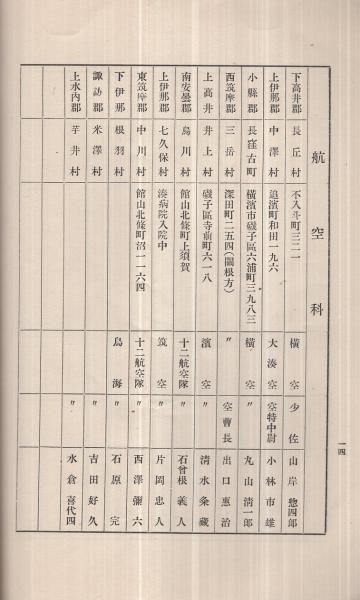 航空科
下高井郡 長丘村 不入斗町三二一 横空 少佐 山岸惣四郎
上伊那郡 中澤村 追濱町和田一九六 大湊空 空特中尉 小林市雄
小縣郡 長窪古町 横濱市磯子區六浦町三九八三 横空 〃 丸山清一郎
西筑摩郡 三岳村 深田町二五四(關根方) 〃 空曹長 出口惠治
上高井郡 井上村 磯子區寺前町六一八 濱空 〃 清水粂藏
南安曇郡 烏川村 館山北條町上須賀 十二航空隊 〃 石曾根義人
上伊那郡 七久保村 湊病院入院中 筑空 〃 片岡忠人
東筑摩郡 中川村 館山北條町沼一一六四 十二航空隊 〃 西澤彌六
下伊那 根羽村 鳥海 〃 石原完
諏訪郡 米澤村 〃 吉田好久
上水內郡 芋井村 〃 水倉喜代四
一四